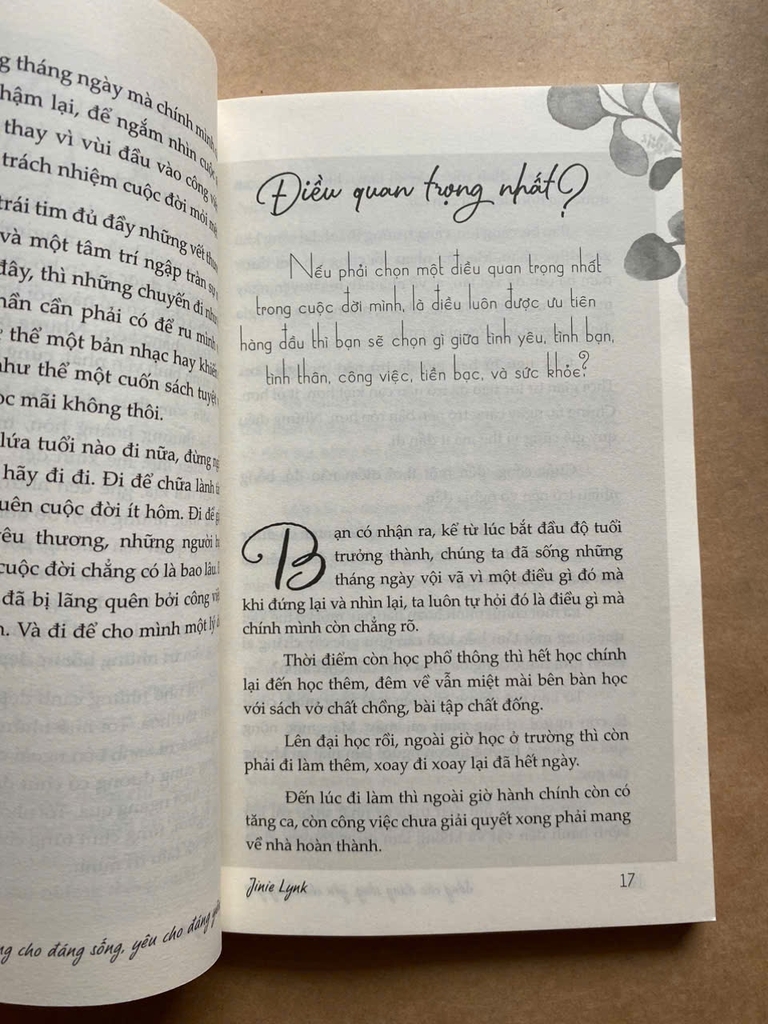 tháng ngày mà chính mình
lại, để ngắm nhìn
thay vì vùi đầu vào công
trách nhiệm cuộc đời mỏi
trái tim đủ đầy những vết
và một tâm trí ngập tràn
đây, thì những chuyến đi như
cần phải có để ru mình
thể một bản nhạc hay
như thể một cuốn sách tuyệt
mãi không thôi.
lứa tuổi nào đi nữa, đừng
hãy đi đi. Đi để chữa lành
cuộc đời ít hôm. Đi để
yêu thương, những người
cuộc đời chẳng có là bao lâu.
đã bị lãng quên bởi công
Và đi để cho mình một lý
cho đáng sống, yêu cho đáng
Điều quan trọng nhất?
Nếu phải chọn một điều quan trọng nhất
trong cuộc đời mình, là điều luôn được ưu tiên
hàng đầu thì bạn sẽ chọn gì giữa tình yêu, tình bạn,
tình thân, công việc, tiền bạc, và sức khỏe?
Bạn có nhận ra, kể từ lúc bắt đầu độ tuổi
trưởng thành, chúng ta đã sống những
tháng ngày vội vã vì một điều gì đó mà
khi đứng lại và nhìn lại, ta luôn tự hỏi đó là điều gì mà
chính mình còn chẳng rõ.
Thời điểm còn học phổ thông thì hết học chính
lại đến học thêm, đêm về vẫn miệt mài bên bàn học
với sách vở chất chồng, bài tập chất đống.
Lên đại học rồi, ngoài giờ học ở trường thì còn
phải đi làm thêm, xoay đi xoay lại đã hết ngày.
Đến lúc đi làm thì ngoài giờ hành chính còn có
tăng ca, còn công việc chưa giải quyết xong phải mang
về nhà hoàn thành.
Jinie Lynk
17